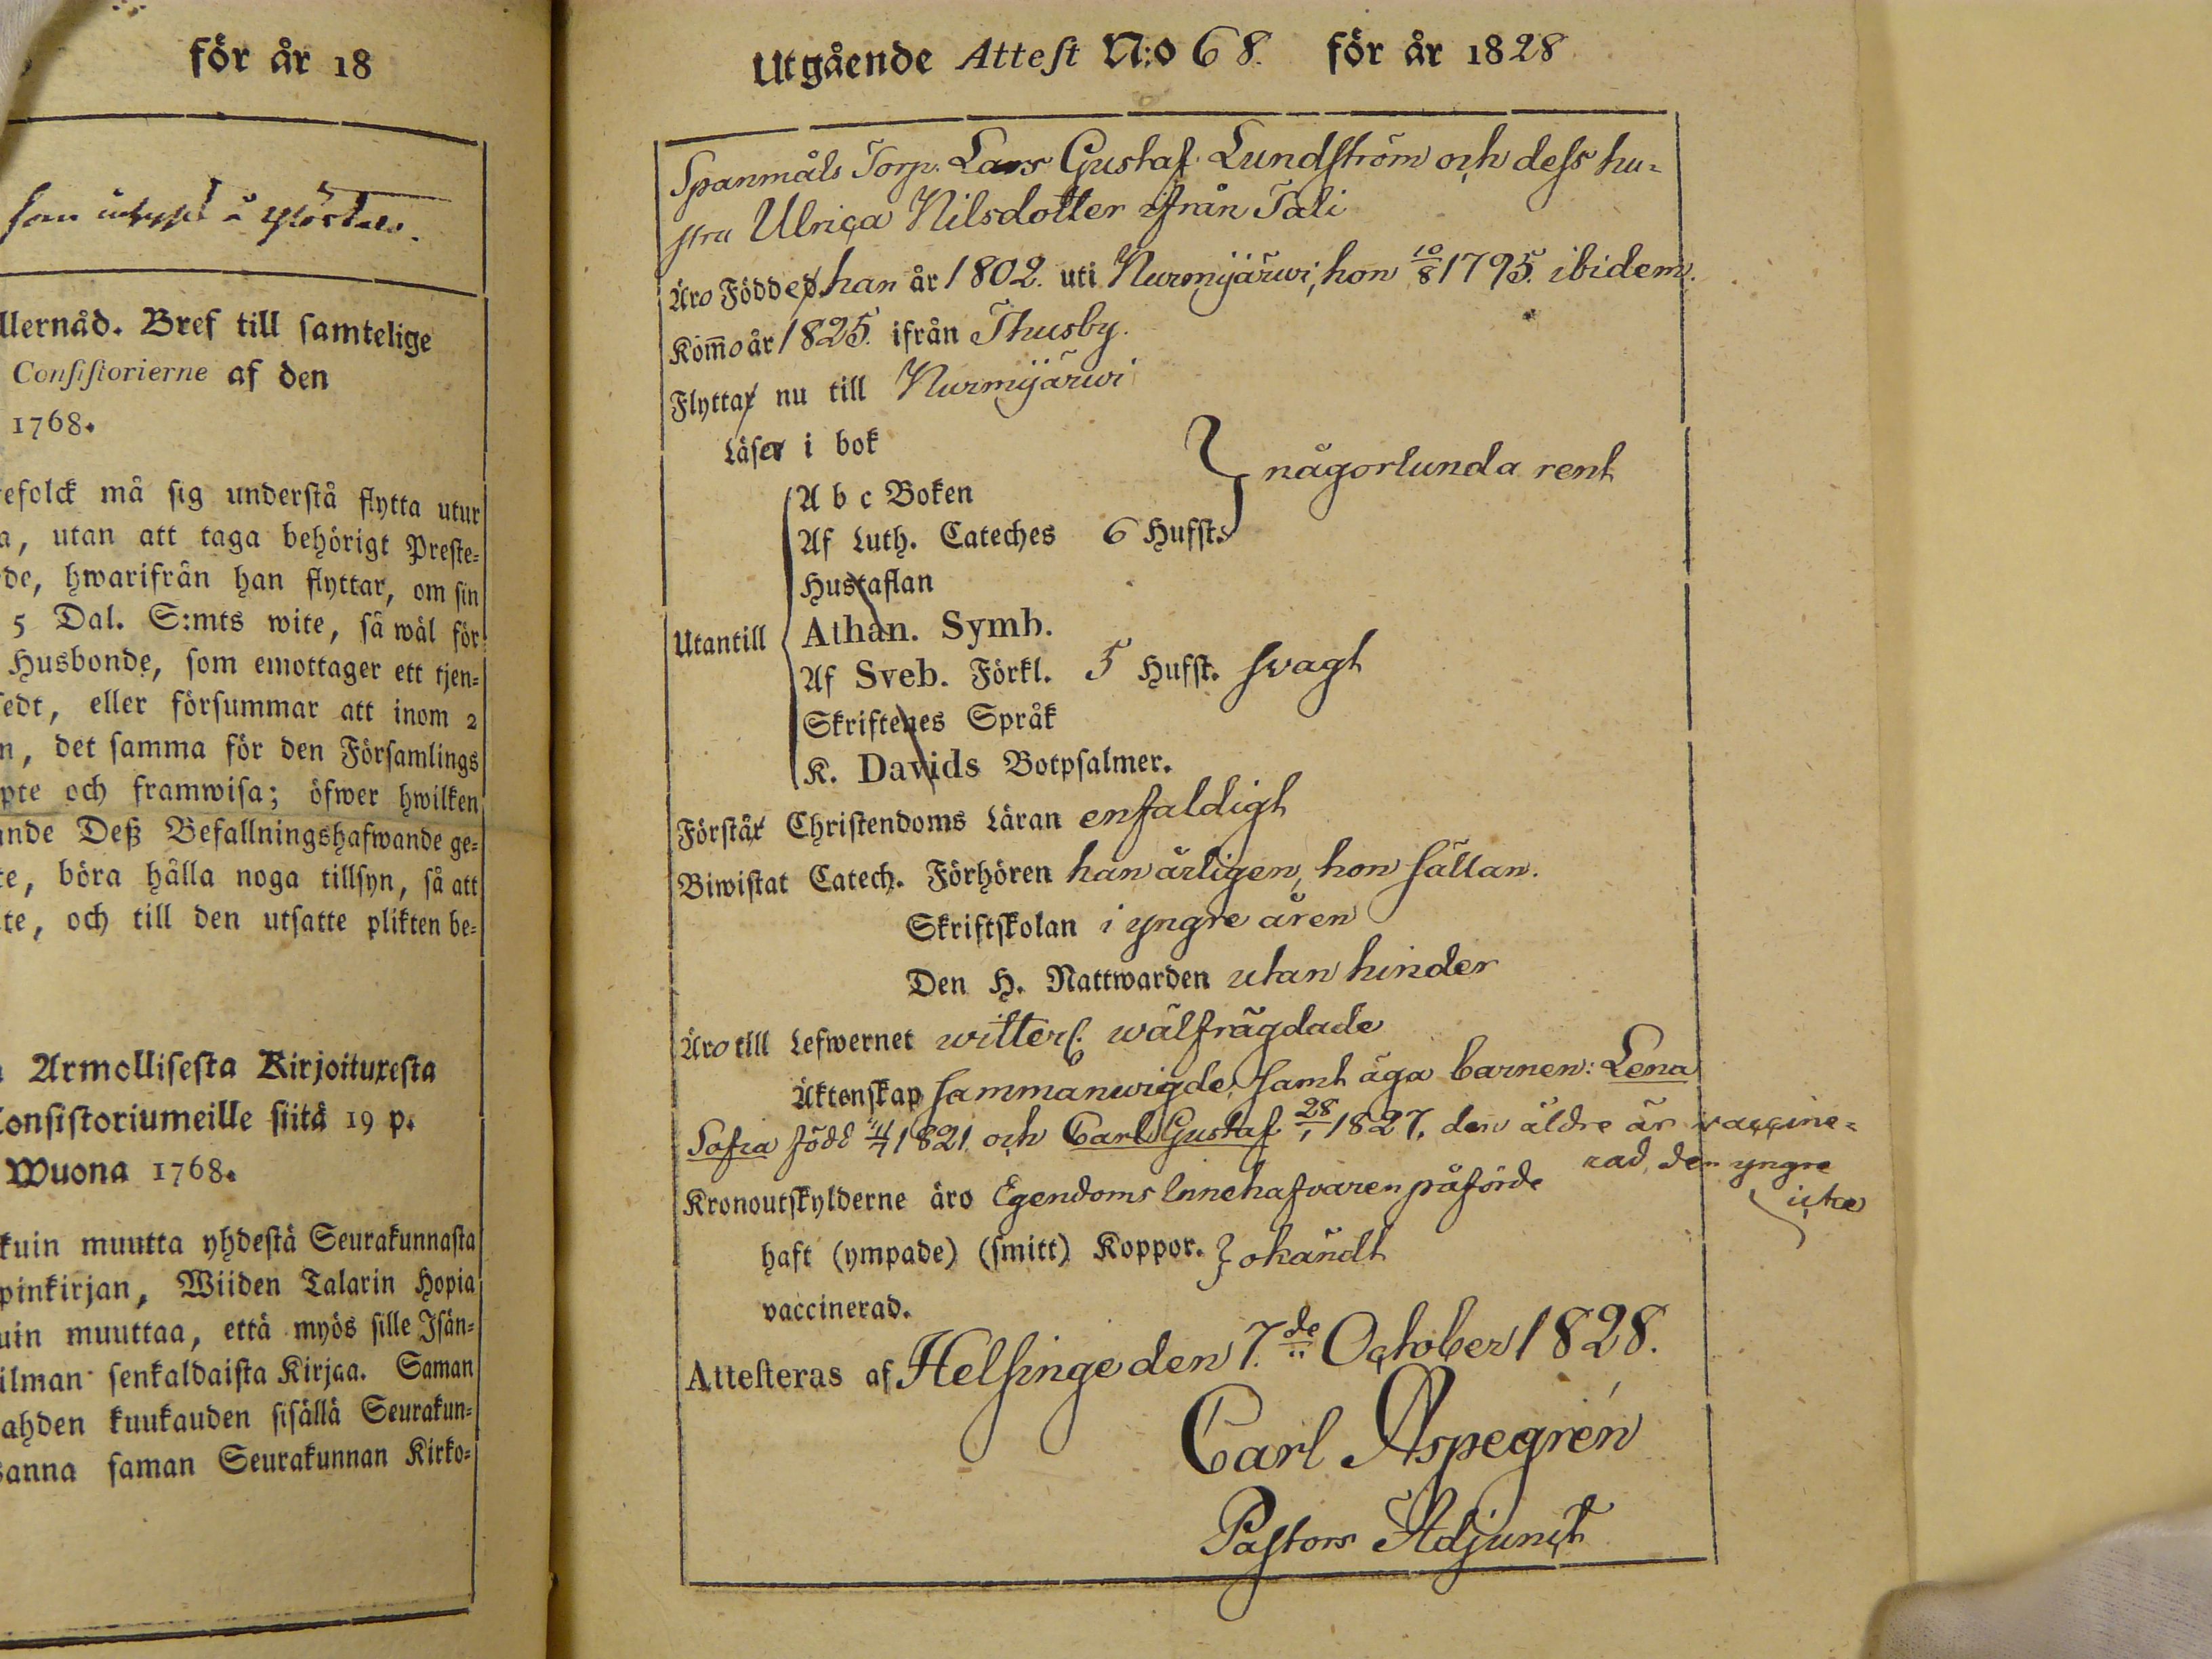 för år 18
llernåd. Bref till samtelige
Consistorierne af den
1768.
efolck må sig understå flytta utur
a, utan att taga behörigt Preste-
de, hwarifrån han flyttar, om sin
5 Dal. S:mts wite, så wäl för
Husbonde, som emottager ett tjen-
sedt, eller försummar att inom 2
n, det samma för den Församlings
pte och framwisa; öfwer hwilken
ande Deß Befallningshafwande ge-
te, böra hålla noga tillsyn, så att
te, och till den utsatte plikten be-
Armollisesta Kirjoituxesta
Consistoriumeille siitä 19 p.
Wuona 1768.
kuin muutta yhdestä Seurakunnasta
pinkirjan, Wiiden Talarin Hopia
uin muuttaa, että myös sille Isän-
ilman senkaldaista Kirjaa. Saman
ahden kuukauden sisällä Seurakun-
sanna saman Seurakunnan Kirko-
Utgående Attest N:o 68. för år 1828
Spanmåls Torp. Lars Gustaf Lundström och dess hu-
stru Ulrica Nilsdotter ifrån Tali
Äro Födde han år 1802. uti Nurmijärwi, hon 10/8 1795. ibidem.
Kom̄o år 1825. ifrån Thusby.
Flytta nu till Nurmijärwi
Läser i bok
A b c Boken } någorlunda rent
Af Luth. Cateches 6 Hufst.
Hustaflan
Utantill Athan. Symb.
Af Sveb. Förkl. 5 Hufst. svagt
Skriftenes Språk
K. Davids Botpsalmer.
Förstå Christendoms Läran enfaldigt
Biwistat Catech. Förhören han årligen, hon sällan.
Skriftskolan i yngre åren
Den H. Nattwarden utan hinder
Äro till Lefwernet witterl. wälfrägdade
Äktenskap sammanwigde, samt äga barnen: Lena
Sofia född 1821. och Carl Gustaf 28/1 1827, den äldre är vaccine-
rad, den yngre
icke
Kronoutskylderne äro Egendoms Innehafvaren påförde
haft (ympade) (smitt) Koppor. } okändt
vaccinerad.
Attesteras af Helsinge den 7.de October 1828.
Carl Aspegrén
Pastors Adjunct